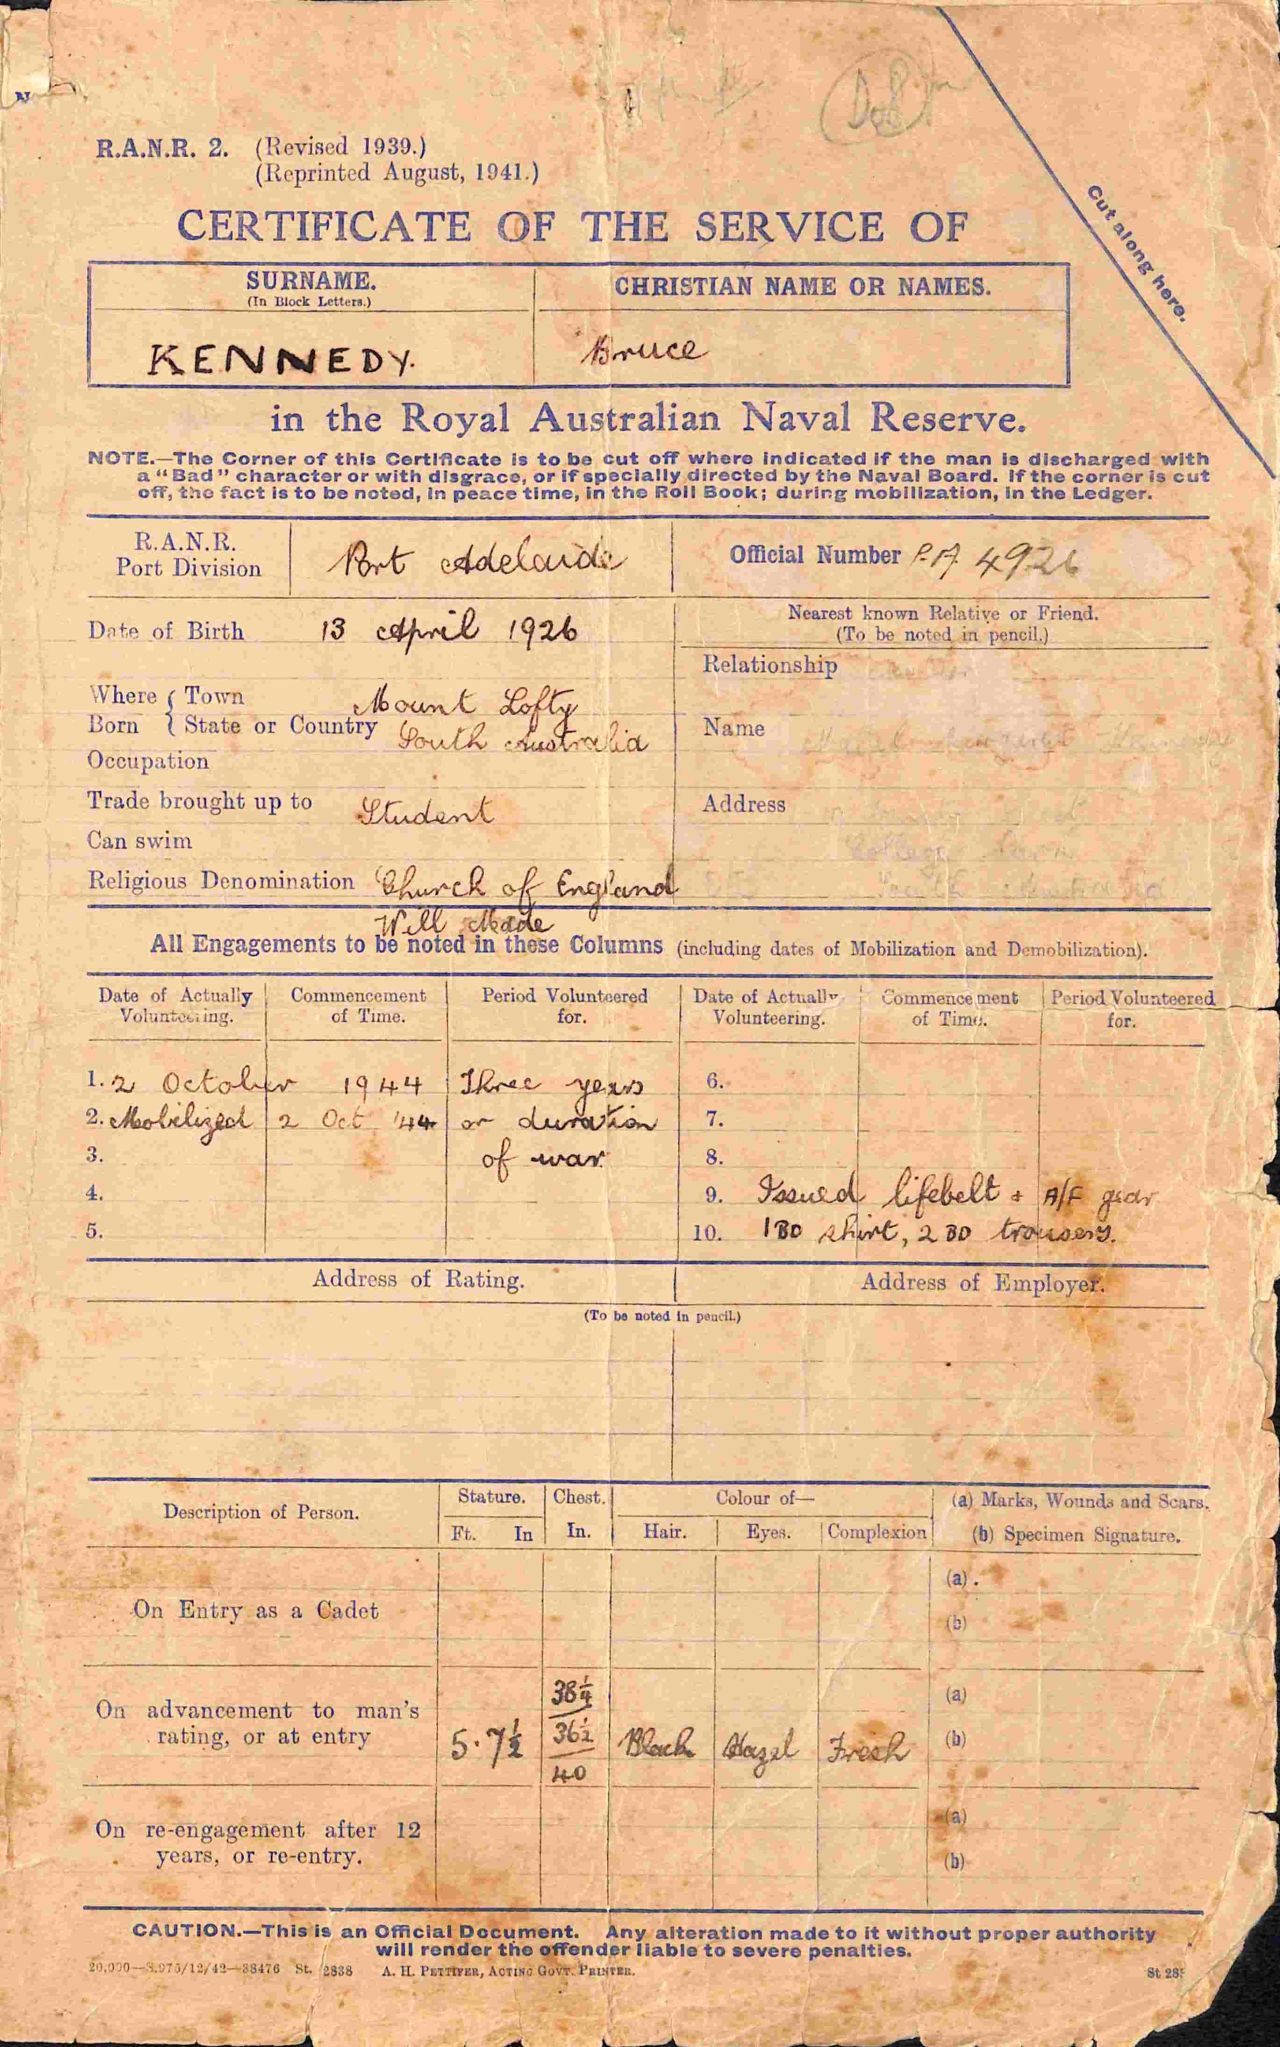 R.A.N.R. 2. (Revised 1939.)
(Reprinted August, 1941.)
Cut along here.
CERTIFICATE OF THE SERVICE OF
SURNAME. CHRISTIAN NAME OR NAMES.
(In Block Letters.)
KENNEDY. Bruce
in the Royal Australian Naval Reserve.
NOTE.—The Corner of this Certificate is to be cut off where indicated if the man is discharged with
a "Bad" character or with disgrace, or if specially directed by the Naval Board. If the corner is cut
off, the fact is to be noted, in peace time, in the Roll Book; during mobilization, in the Ledger.
R.A.N.R. Port Division Port Adelaide Official Number P.A. 4926
Date of Birth 13 April 1926
Nearest known Relative or Friend.
(To be noted in pencil.)
Relationship
Where Born { Town Mount Lofty
State or Country South Australia
Name
Occupation
Trade brought up to Student
Address
Can swim
College
Religious Denomination Church of England South
Will Made
All Engagements to be noted in these Columns (including dates of Mobilization and Demobilization).
Date of Actually Volunteering. Commencement of Time. Period Volunteered for. Date of Actually Volunteering. Commencement of Time. Period Volunteered for.
1. 2 October 1944 Three years 6.
2. Mobilized 2 Oct '44 or duration 7.
3. of war. 8.
4. 9. Issued lifebelt + A/F gear
5. 10. 1 BD shirt, 2 BD trousers.
Address of Rating. Address of Employer.
(To be noted in pencil.)
Description of Person. Stature. Chest. Colour of— (a) Marks, Wounds and Scars.
Ft. In In. Hair. Eyes. Complexion (b) Specimen Signature.
On Entry as a Cadet (a).
(b)
On advancement to man's 38¼ (a)
rating, or at entry 5. 7½ 36½ Black Hazel Fresh (b)
40
On re-engagement after 12 (a)
years, or re-entry. (b)
CAUTION.—This is an Official Document. Any alteration made to it without proper authority
will render the offender liable to severe penalties.
20,000—3.975/12/42—38476 St. 2838 A. H. PETTIFER, ACTING GOVT. PRINTER. St 28